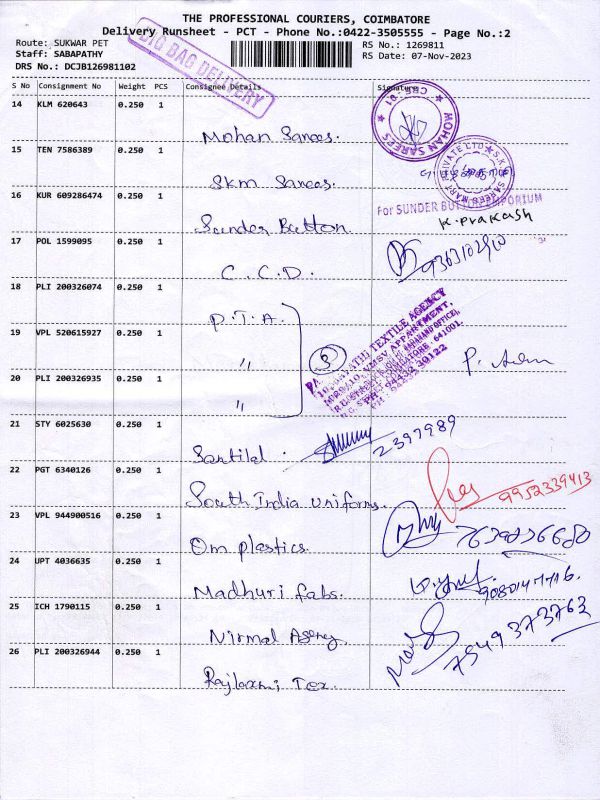 THE PROFESSIONAL COURIERS, COIMBATORE
Delivery Runsheet - PCT - Phone No.:0422-3505555 - Page No.:2
Route: SUKWAR PET
RS No.: 1269811
Staff: SABAPATHY
RS Date: 07-Nov-2023
DRS No.: DCJB126981102
BIG BAG DELIVERY
S No Consignment No Weight PCS Consignee Details Signature
14 KLM 620643 0.250 1
Mohan Sarees.
MOHAN SAREES
15 TEN 7586389 0.250 1
SKM Sarees.
16 KUR 609286474 0.250 1
Sunder Button
For SUNDER BUTTON EMPORIUM
K. Prakash
17 POL 1599095 0.250 1
C.C.D.
9363102910
18 PLI 200326074 0.250 1
P.T.A.
19 VPL 520615927 0.250 1
"
3
TEXTILE AGENCY
COIMBATORE - 641001.
20 PLI 200326935 0.250 1
"
21 STY 6025630 0.250 1
2397989
22 PGT 6340126 0.250 1
South India uniforms.
9952339413
23 VPL 944900516 0.250 1
Om plastics.
24 UPT 4036635 0.250 1
Madhuri fabs.
25 ICH 1790115 0.250 1
Nirmal Agency
7549373763
26 PLI 200326944 0.250 1
Rajlaxmi Tex.